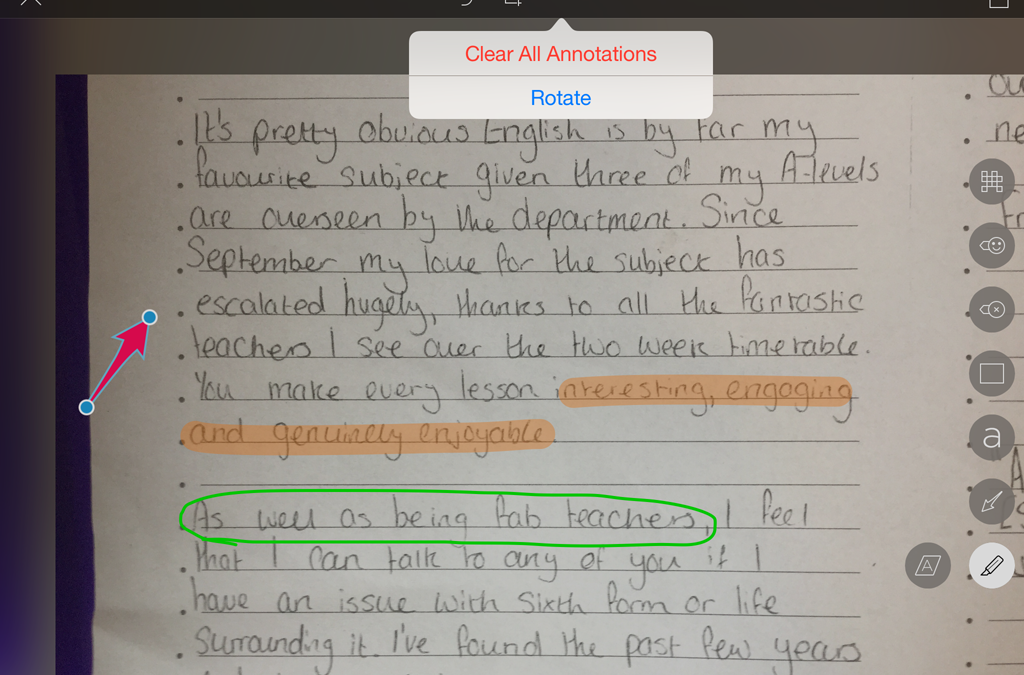 Clear All Annotations
Rotate
It's pretty obvious English is by far my
favourite subject given three of my A-levels
are overseen by the department. Since
September my love for the subject has
escalated hugely, thanks to all the fantastic
teachers I see over the two week timetable.
You make every lesson interesting, engaging
and genuinely enjoyable
As well as being fab teachers, I feel
that I can talk to any of you if I
have an issue with sixth form or life
surrounding it. I've found the past few years
a
A